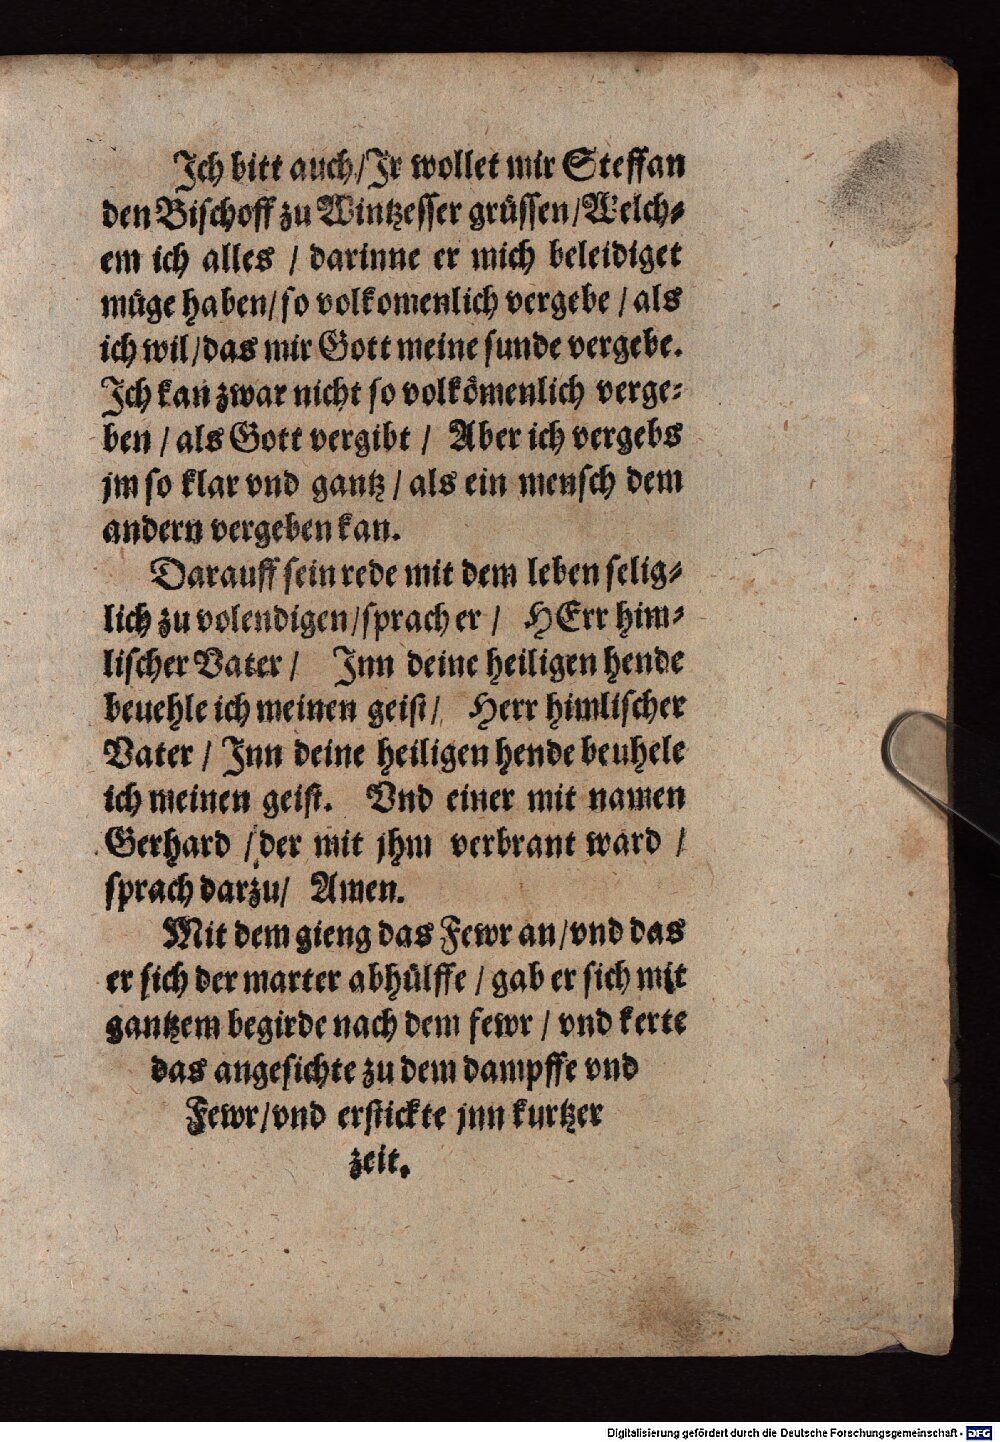 Ich bitt auch/Jr wollet mir Steffan
den Bischoff zu Wintzesser grüssen/Welch⸗
em ich alles / darinne er mich beleidiget
müge haben/so volkomenlich vergebe / als
ich wil/das mir Gott meine sunde vergebe.
Ich kan zwar nicht so volkōmenlich verge⸗
ben / als Gott vergibt / Aber ich vergebs
jm so klar vnd gantz / als ein mensch dem
andern vergeben kan.
Darauff sein rede mit dem leben selig⸗
lich zu volendigen/sprach er / HErr him⸗
lischer Vater / Inn deine heiligen hende
beuehle ich meinen geist/ Herr himlischer
Vater / Inn deine heiligen hende beuhele
ich meinen geist. Vnd einer mit namen
Gerhard / der mit jhm verbrant ward /
sprach darzu/ Amen.
Mit dem gieng das Fewr an/vnd das
er sich der marter abhülffe / gab er sich mit
gantzem begirde nach dem fewr / vnd kerte
das angesichte zu dem dampffe vnd
Fewr/vnd erstickte jnn kurtzer
zeit.
Digitalisierung gefördert durch die Deutsche Forschungsgemeinschaft - DFG